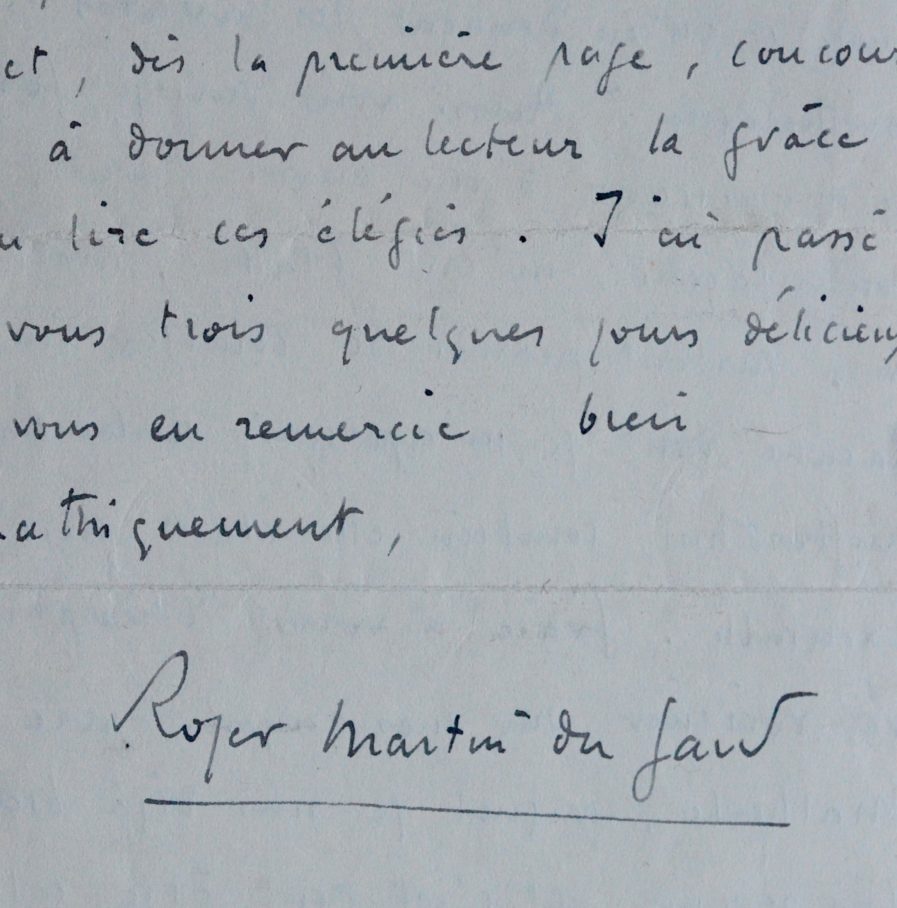 et, dès la première page, concour
à donner au lecteur la grâce
u lire ces élégies. J'ai passé
vous trois quelques jours délicieux
vous en remercie bien
athiquement,
Roger Martin du Gard